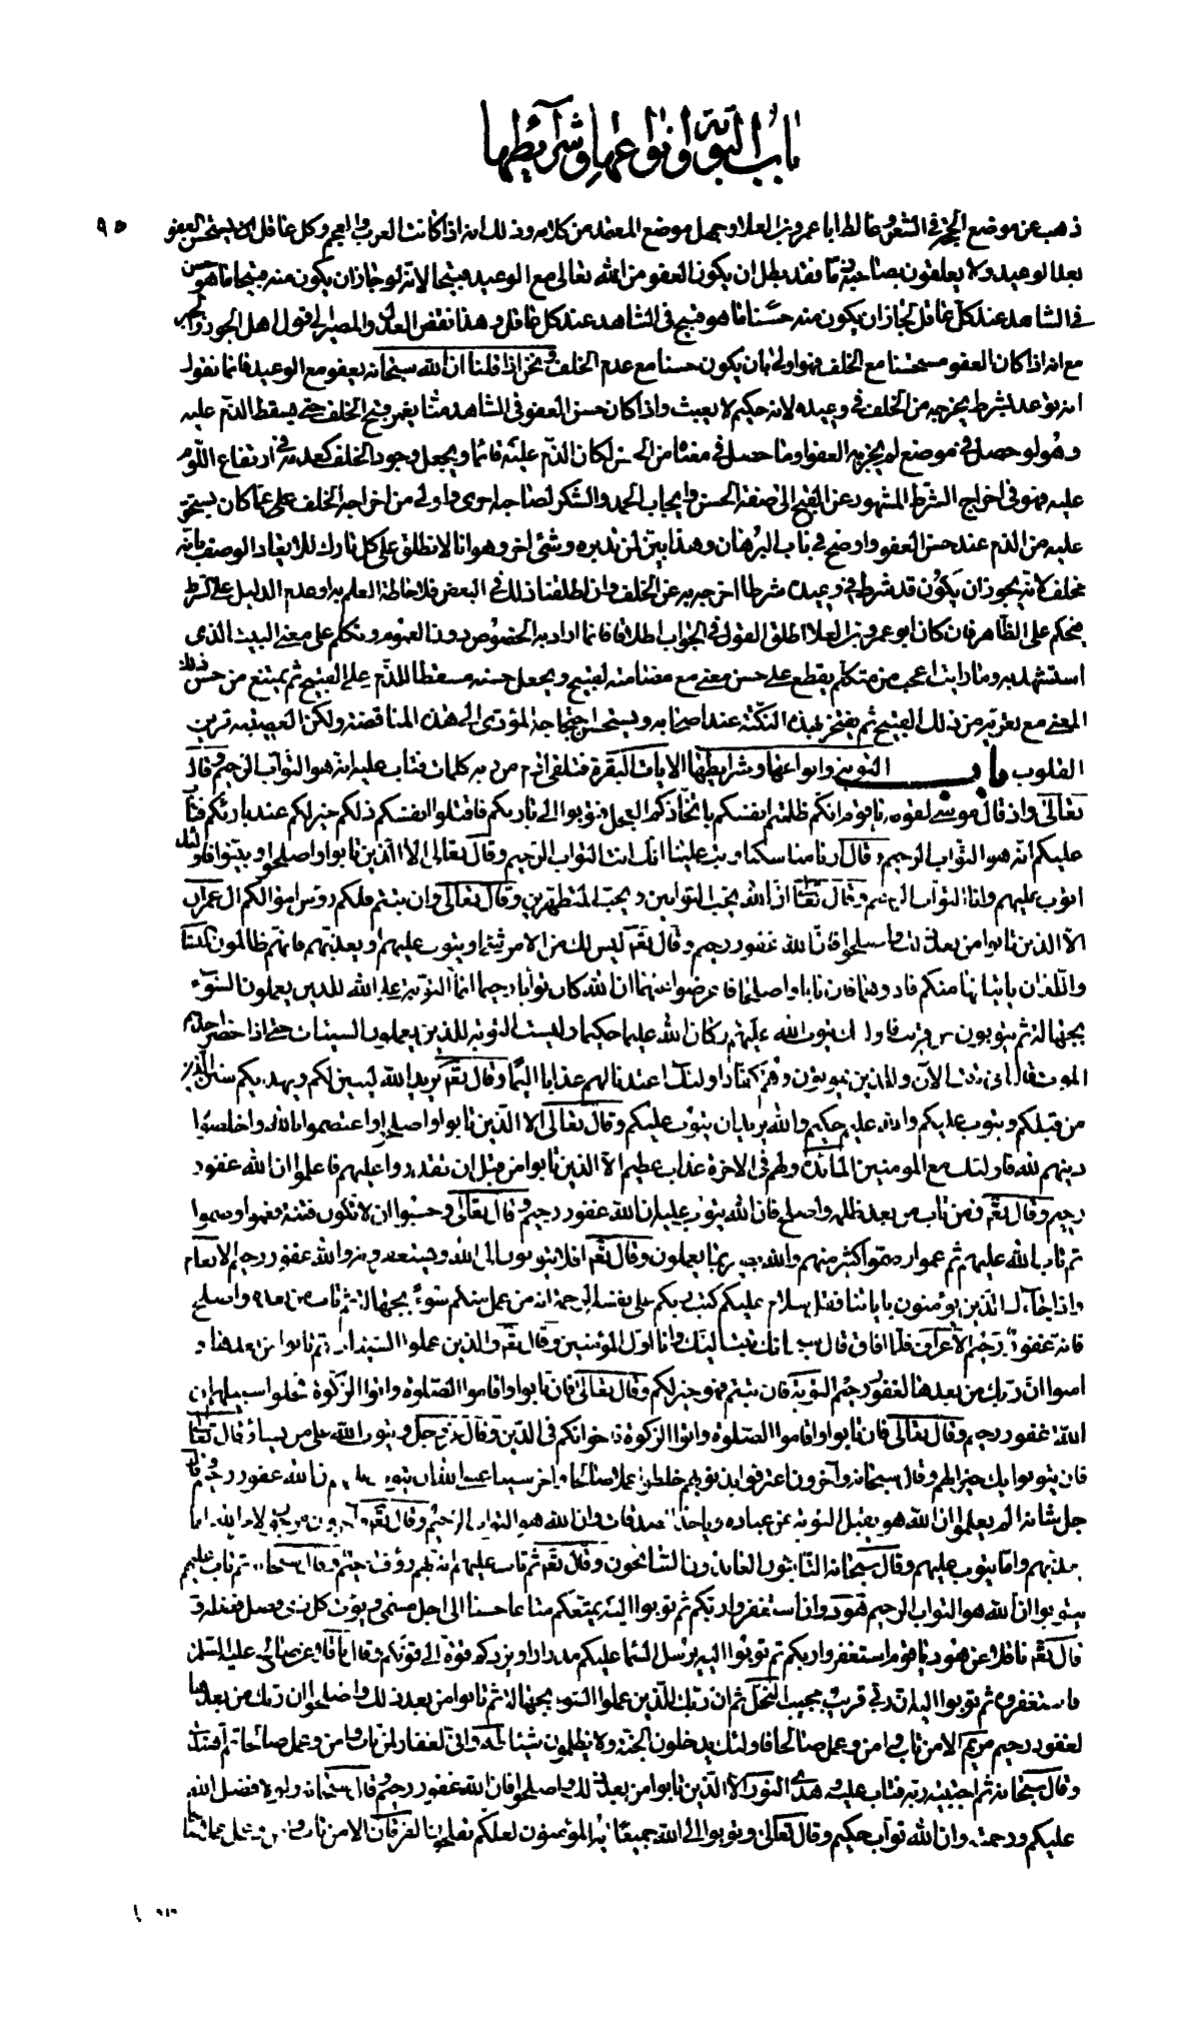 باب التوبة وانواعها وشرائطها
٩٥
ذهب عن موضع الحجة في الشعر وغالط ابا عمرو بن العلا وجهل موضع المعتمد من كلامه وذلك انه اذا كانت العرب والعجم وكل عاقل يستحسن العفو
بعد الوعيد ولا يعلقون بصاحبه ذما فقد بطل ان يكون العفو من الله تعالى مع الوعيد قبيحا لانه لو جاز ان يكون منه قبيحا ما هو حسن
في الشاهد عند كل عاقل لجاز ان يكون منه حسنا ما هو قبيح في الشاهد عند كل عاقل وهذا نقض العدل والمصير الى قول اهل الجور والجبر
مع انه اذا كان العفو مستحسنا مع الخلف فهو اولى بان يكون حسنا مع عدم الخلف ونحن اذا قلنا ان الله سبحانه يعفو مع الوعيد فانما نقول
انه توعد بشرط يخرجه من الخلف في وعيده لانه حكيم لا يعبث واذا كان حسن العفو في الشاهد منا يغمر قبح الخلف حتى يسقط الذم عليه
وهو لو حصل في موضع لم يجز به العفو او ما حصل في معناه من الحسن لكان الذم عليه قائما ويجعل وجود الخلف كعدمه في ارتفاع اللوم
عليه فهو في اخراج الشرط المشهور عن القبح الى صفة الحسن وايجاب الحمد والشكر لصاحبه احرى واولى من اخراجه الخلف على عما كان يستحق
عليه من الذم عند حسن العفو واوضح في باب البرهان وهذا بين لمن تدبره وشئ اخر وهو انا لا نطلق على كل تارك للايفاد الوصف بانه
مخلف لانه يجوز ان يكون قد شرط في وعيده شرطا اخرجه به عن الخلف وان اطلقنا ذلك في البعض فلاحاطة العلم به او عدم الدليل على الشرط
فيحكم على الظاهر فان كان ابو عمرو بن العلا اطلق القول في الجواب اطلاقا فانما اراد به الخصوص دون العموم وتكلم على معنى البيت الذى
استشهد به وما رايت اعجب من متكلم يقطع على حسن معنى مع مضامته لقبيح ويجعل حسنه مسقطا للذم على القبيح ثم يمتنع من حسن ذلك
المعنى مع تعريه من ذلك القبيح ثم يفتخر بهذه النكتة عند اصحابه ويستحسن احتجاجه المؤدى الى هذه المناقضة ولكن العصبية ترين
القلوب باب التوبة وانواعها وشرايطها الايات البقرة فتلقى ادم من ربه كلمات فتاب عليه انه هو التواب الرحيم وقال
تعالى واذ قال موسى لقومه يا قوم انكم ظلمتم انفسكم باتخاذكم العجل فتوبوا الى بارئكم فاقتلوا انفسكم ذلكم خير لكم عند بارئكم فتاب
عليكم انه هو التواب الرحيم وقال وارنا مناسكنا وتب علينا انك انت التواب الرحيم وقال تعالى الا الذين تابوا واصلحوا وبينوا فاولئك
اتوب عليهم وانا التواب الرحيم وقال تعالى ان الله يحب التوابين ويحب المتطهرين وقال تعالى وان تبتم فلكم رؤس اموالكم ال عمران
الا الذين تابوا من بعد ذلك واصلحوا فان الله غفور رحيم وقال تعم ليس لك من الامر شئ او يتوب عليهم او يعذبهم فانهم ظالمون النساء
واللذان ياتيانها منكم فاذوهما فان تابا واصلحا فاعرضوا عنهما ان الله كان توابا رحيما انما التوبة على الله للذين يعملون السوء
بجهالة ثم يتوبون من قريب فاولئك يتوب الله عليهم وكان الله عليما حكيما وليست التوبة للذين يعملون السيئات حتى اذا حضر احدهم
الموت قال انى تبت الآن ولا الذين يموتون وهم كفار اولئك اعتدنا لهم عذابا اليما وقال تعم يريد الله ليبين لكم ويهديكم سنن الذين
من قبلكم ويتوب عليكم والله عليم حكيم والله يريد ان يتوب عليكم وقال تعالى الا الذين تابوا واصلحوا واعتصموا بالله واخلصوا
دينهم لله فاولئك مع المومنين المائدة ولهم في الاخرة عذاب عظيم الا الذين تابوا من قبل ان تقدروا عليهم فاعلموا ان الله غفور
رحيم وقال تعم فمن تاب من بعد ظلمه واصلح فان الله يتوب عليه ان الله غفور رحيم وقال تعالى وحسبوا ان لا تكون فتنة فعموا وصموا
ثم تاب الله عليهم ثم عموا وصموا كثير منهم والله بصير بما يعملون وقال تعم افلا يتوبون الى الله ويستغفرونه والله غفور رحيم الانعام
واذا جاءك الذين يؤمنون باياتنا فقل سلام عليكم كتب ربكم على نفسه الرحمة انه من عمل منكم سوء بجهالة ثم تاب من بعده واصلح
فانه غفور رحيم الاعراف فلما افاق قال سبحانك تبت اليك وانا اول المؤمنين وقال تعم والذين عملوا السيئات ثم تابوا من بعدها و
امنوا ان ربك من بعدها لغفور رحيم التوبة فان تبتم فهو خير لكم وقال تعالى فان تابوا واقاموا الصلوة واتوا الزكوة فخلوا سبيلهم ان
الله غفور رحيم وقال تعالى فان تابوا واقاموا الصلوة واتوا الزكوة فاخوانكم في الدين وقال عز وجل ويتوب الله على من يشاء وقال تعالى
فان يتوبوا يك خيرا لهم وقال سبحانه وآخرون اعترفوا بذنوبهم خلطوا عملا صالحا واخر سيئا عسى الله ان يتوب عليهم ان الله غفور رحيم وقال
جل شانه الم يعلموا ان الله هو يقبل التوبة عن عباده وياخذ الصدقات وان الله هو التواب الرحيم وقال تعم وآخرون مرجون لامر الله اما
يعذبهم واما يتوب عليهم وقال سبحانه التائبون العابدون السائحون وقال تعم ثم تاب عليهم انه بهم رؤف رحيم وقال سبحانه ثم تاب عليهم
ليتوبوا ان الله هو التواب الرحيم هود وان استغفروا ربكم ثم توبوا اليه يمتعكم متاعا حسنا الى اجل مسمى ويؤت كل ذى فضل فضله و
قال تعم ناقلا عن هود يا قوم استغفروا ربكم ثم توبوا اليه يرسل السماء عليكم مدرارا ويزدكم قوة الى قوتكم وقال ناقلا عن صالح عليه السلام
فاستغفروه ثم توبوا اليه ان ربى قريب مجيب النحل ثم ان ربك للذين عملوا السوء بجهالة ثم تابوا من بعد ذلك واصلحوا ان ربك من بعدها
لغفور رحيم مريم الا من تاب وامن وعمل صالحا فاولئك يدخلون الجنة ولا يظلمون شيئا طه وانى لغفار لمن تاب وامن وعمل صالحا ثم اهتدى
وقال سبحانه ثم اجتبيه ربه فتاب عليه وهدى النور الا الذين تابوا من بعد ذلك واصلحوا فان الله غفور رحيم وقال سبحانه ولولا فضل الله
عليكم ورحمته وان الله تواب حكيم وقال تعالى وتوبوا الى الله جميعا ايه المؤمنون لعلكم تفلحون الفرقان الا من تاب وامن وعمل عملا صالحا